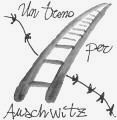 Un treno
per
Auschwitz